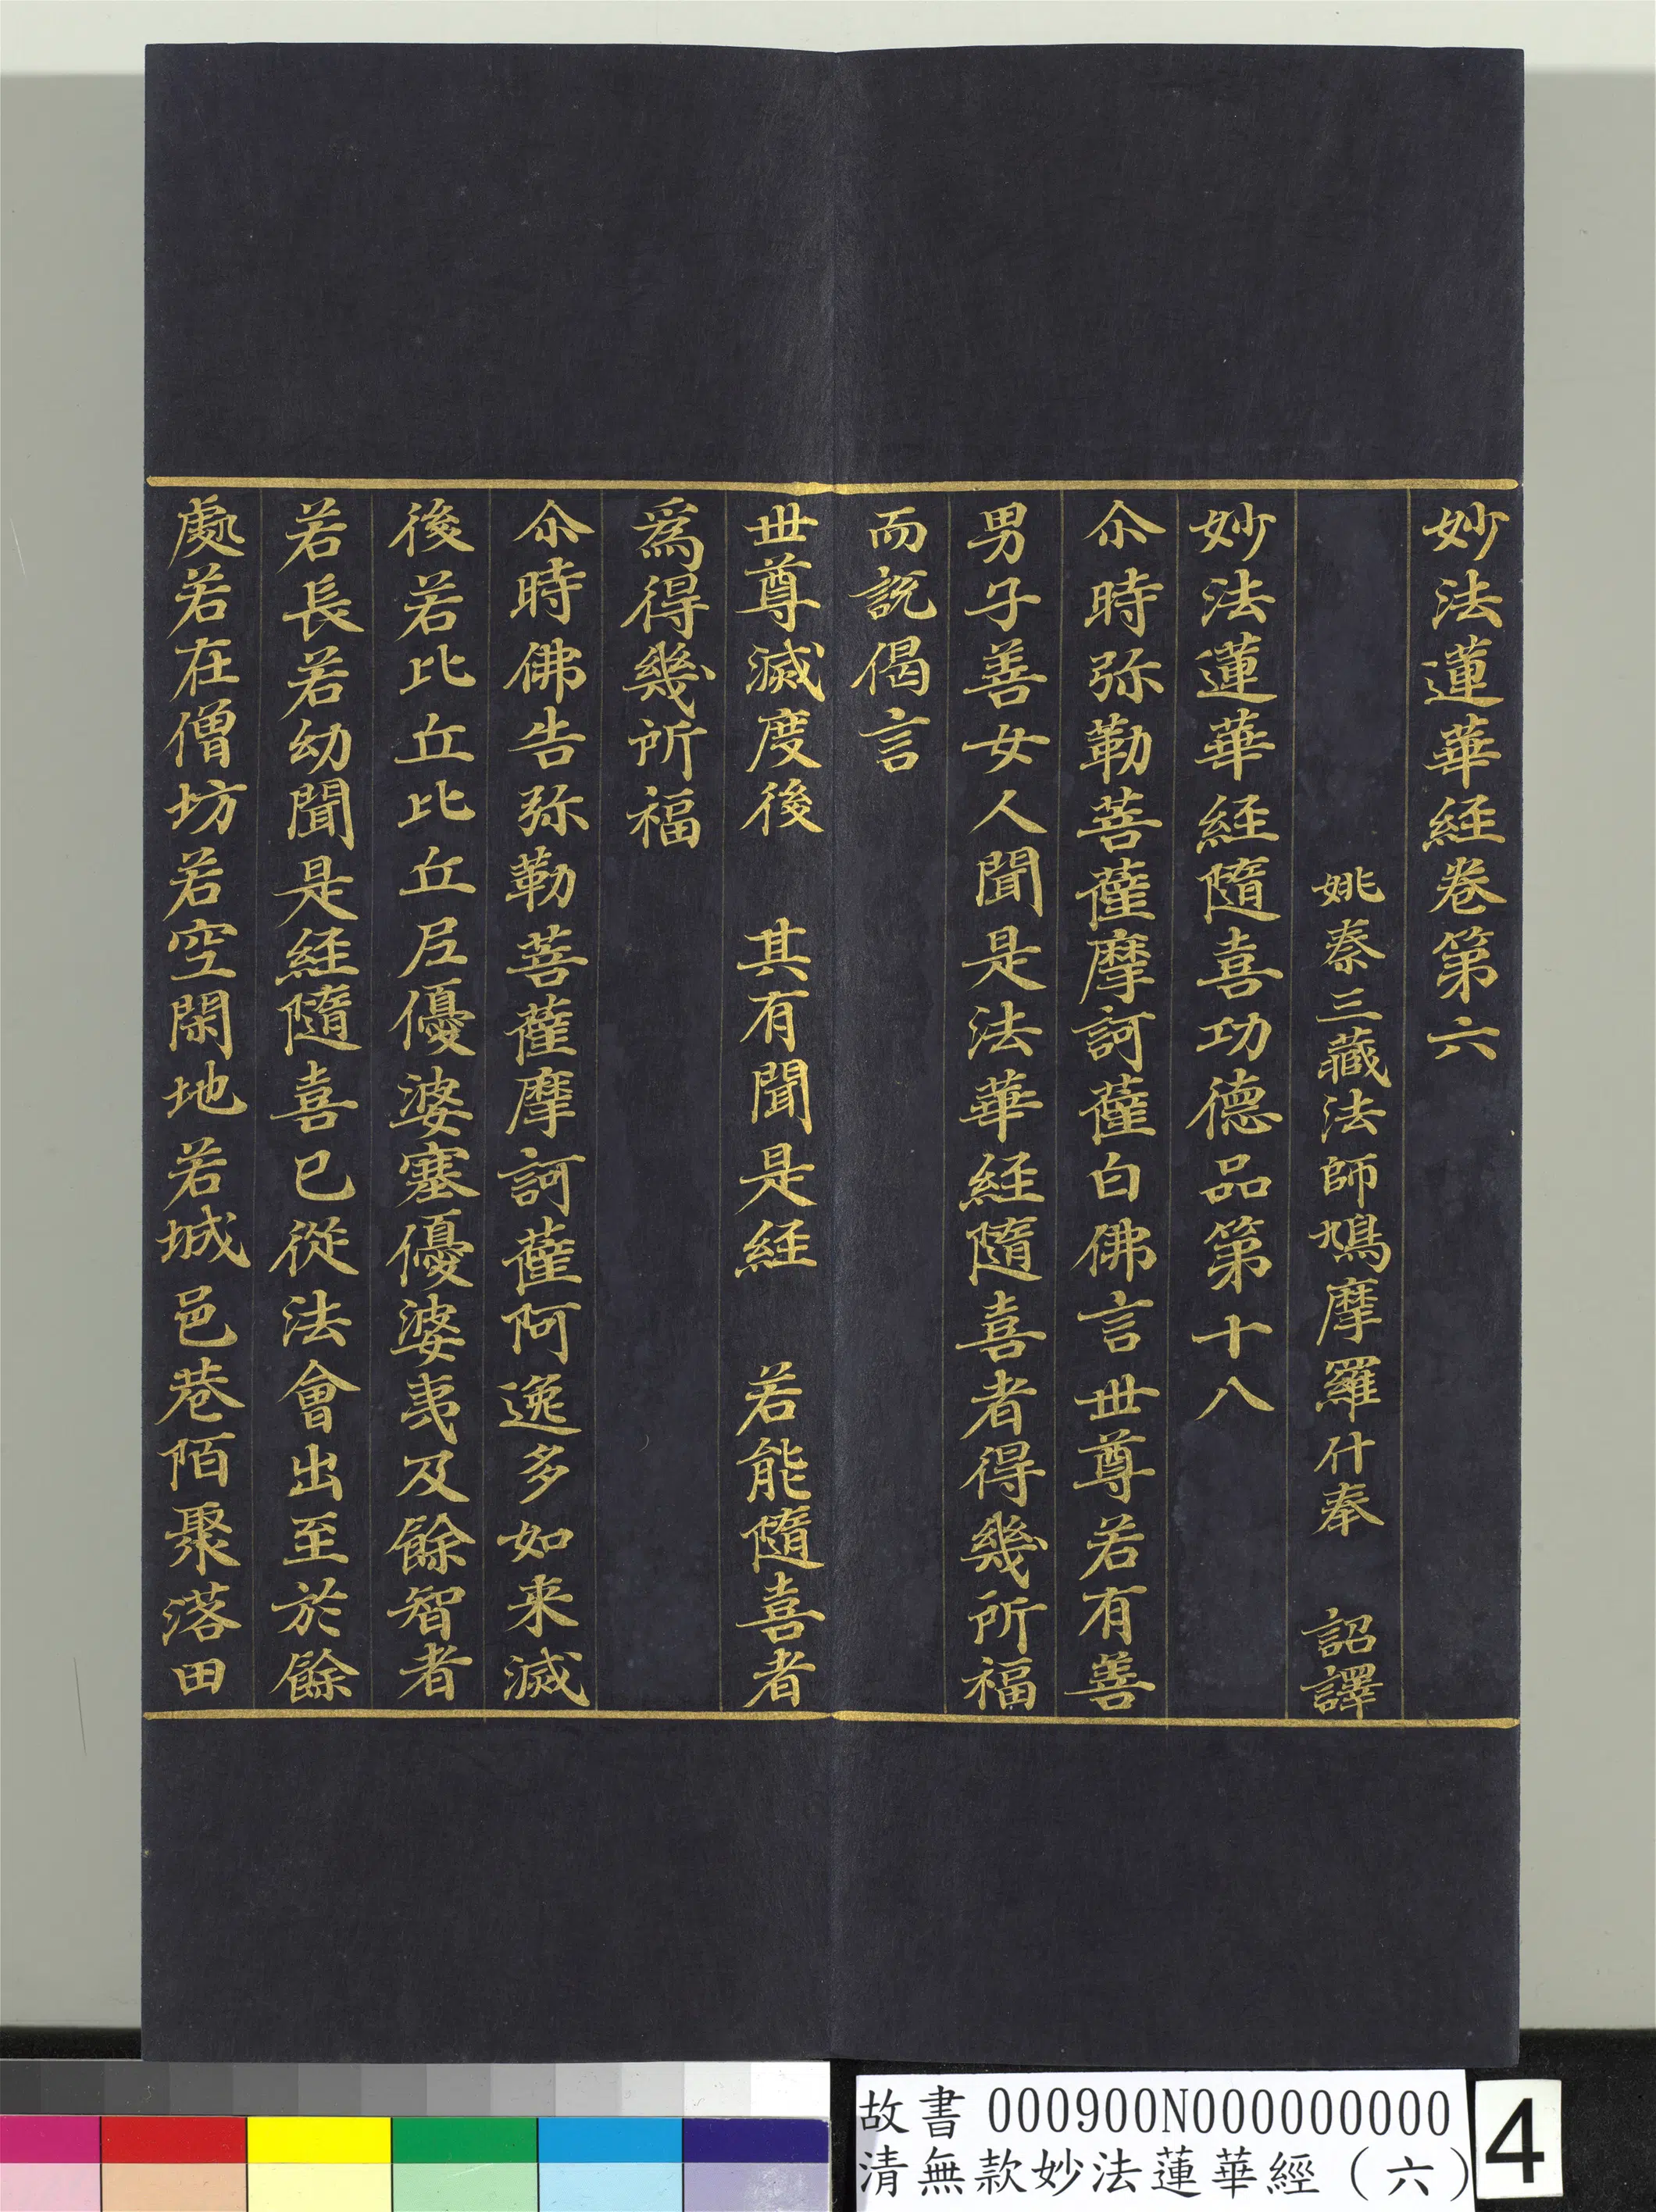 妙法蓮華經卷第六
姚秦三藏法師鳩摩羅什奉　詔譯
妙法蓮華經隨喜功德品第十八
尒時弥勒菩薩摩訶薩白佛言世尊若有善
男子善女人聞是法華經隨喜者得幾所福
而說偈言
世尊滅度後　其有聞是經　若能隨喜者
爲得幾所福
尒時佛告弥勒菩薩摩訶薩阿逸多如来滅
後若比丘比丘尼優婆塞優婆夷及餘智者
若長若幼聞是經隨喜已從法會出至於餘
處若在僧坊若空閑地若城邑巷陌聚落田
故書 000900N000000000
清無款妙法蓮華經（六）
4